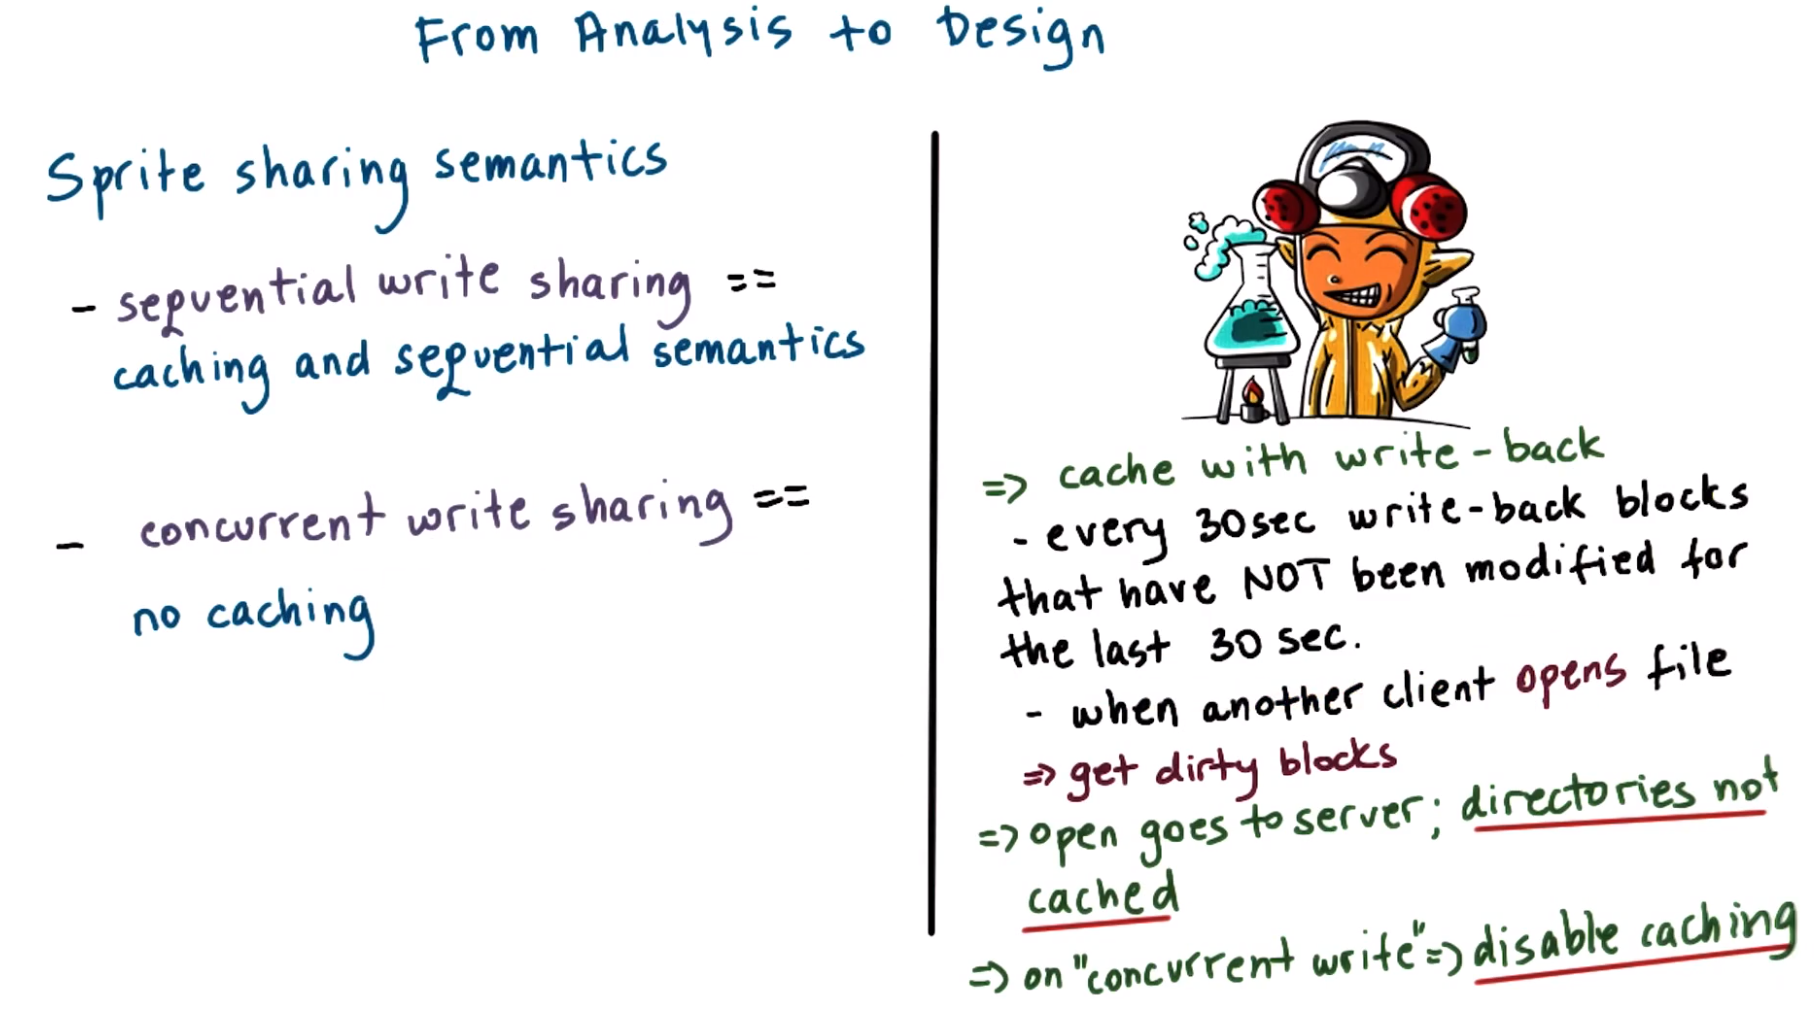 From Analysis to Design
Sprite sharing semantics
- sequential write sharing ==
caching and sequential semantics
- concurrent write sharing ==
no caching
=> cache with write-back
- every 30sec write-back blocks
that have NOT been modified for
the last 30 sec.
- when another client opens file
=> get dirty blocks
=> open goes to server; directories not
cached
=> on "concurrent write" => disable caching